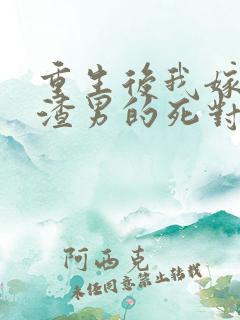 重生後我嫁
渣男的死對
阿西克
未经同意禁止转载